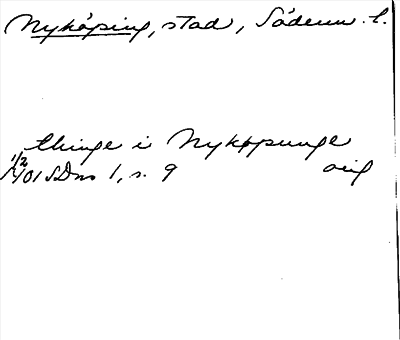 Nyköping, stad, Söderm. l.
thinge i Nykøpunge
1/2 1401 SDns 1, s. 9 orig